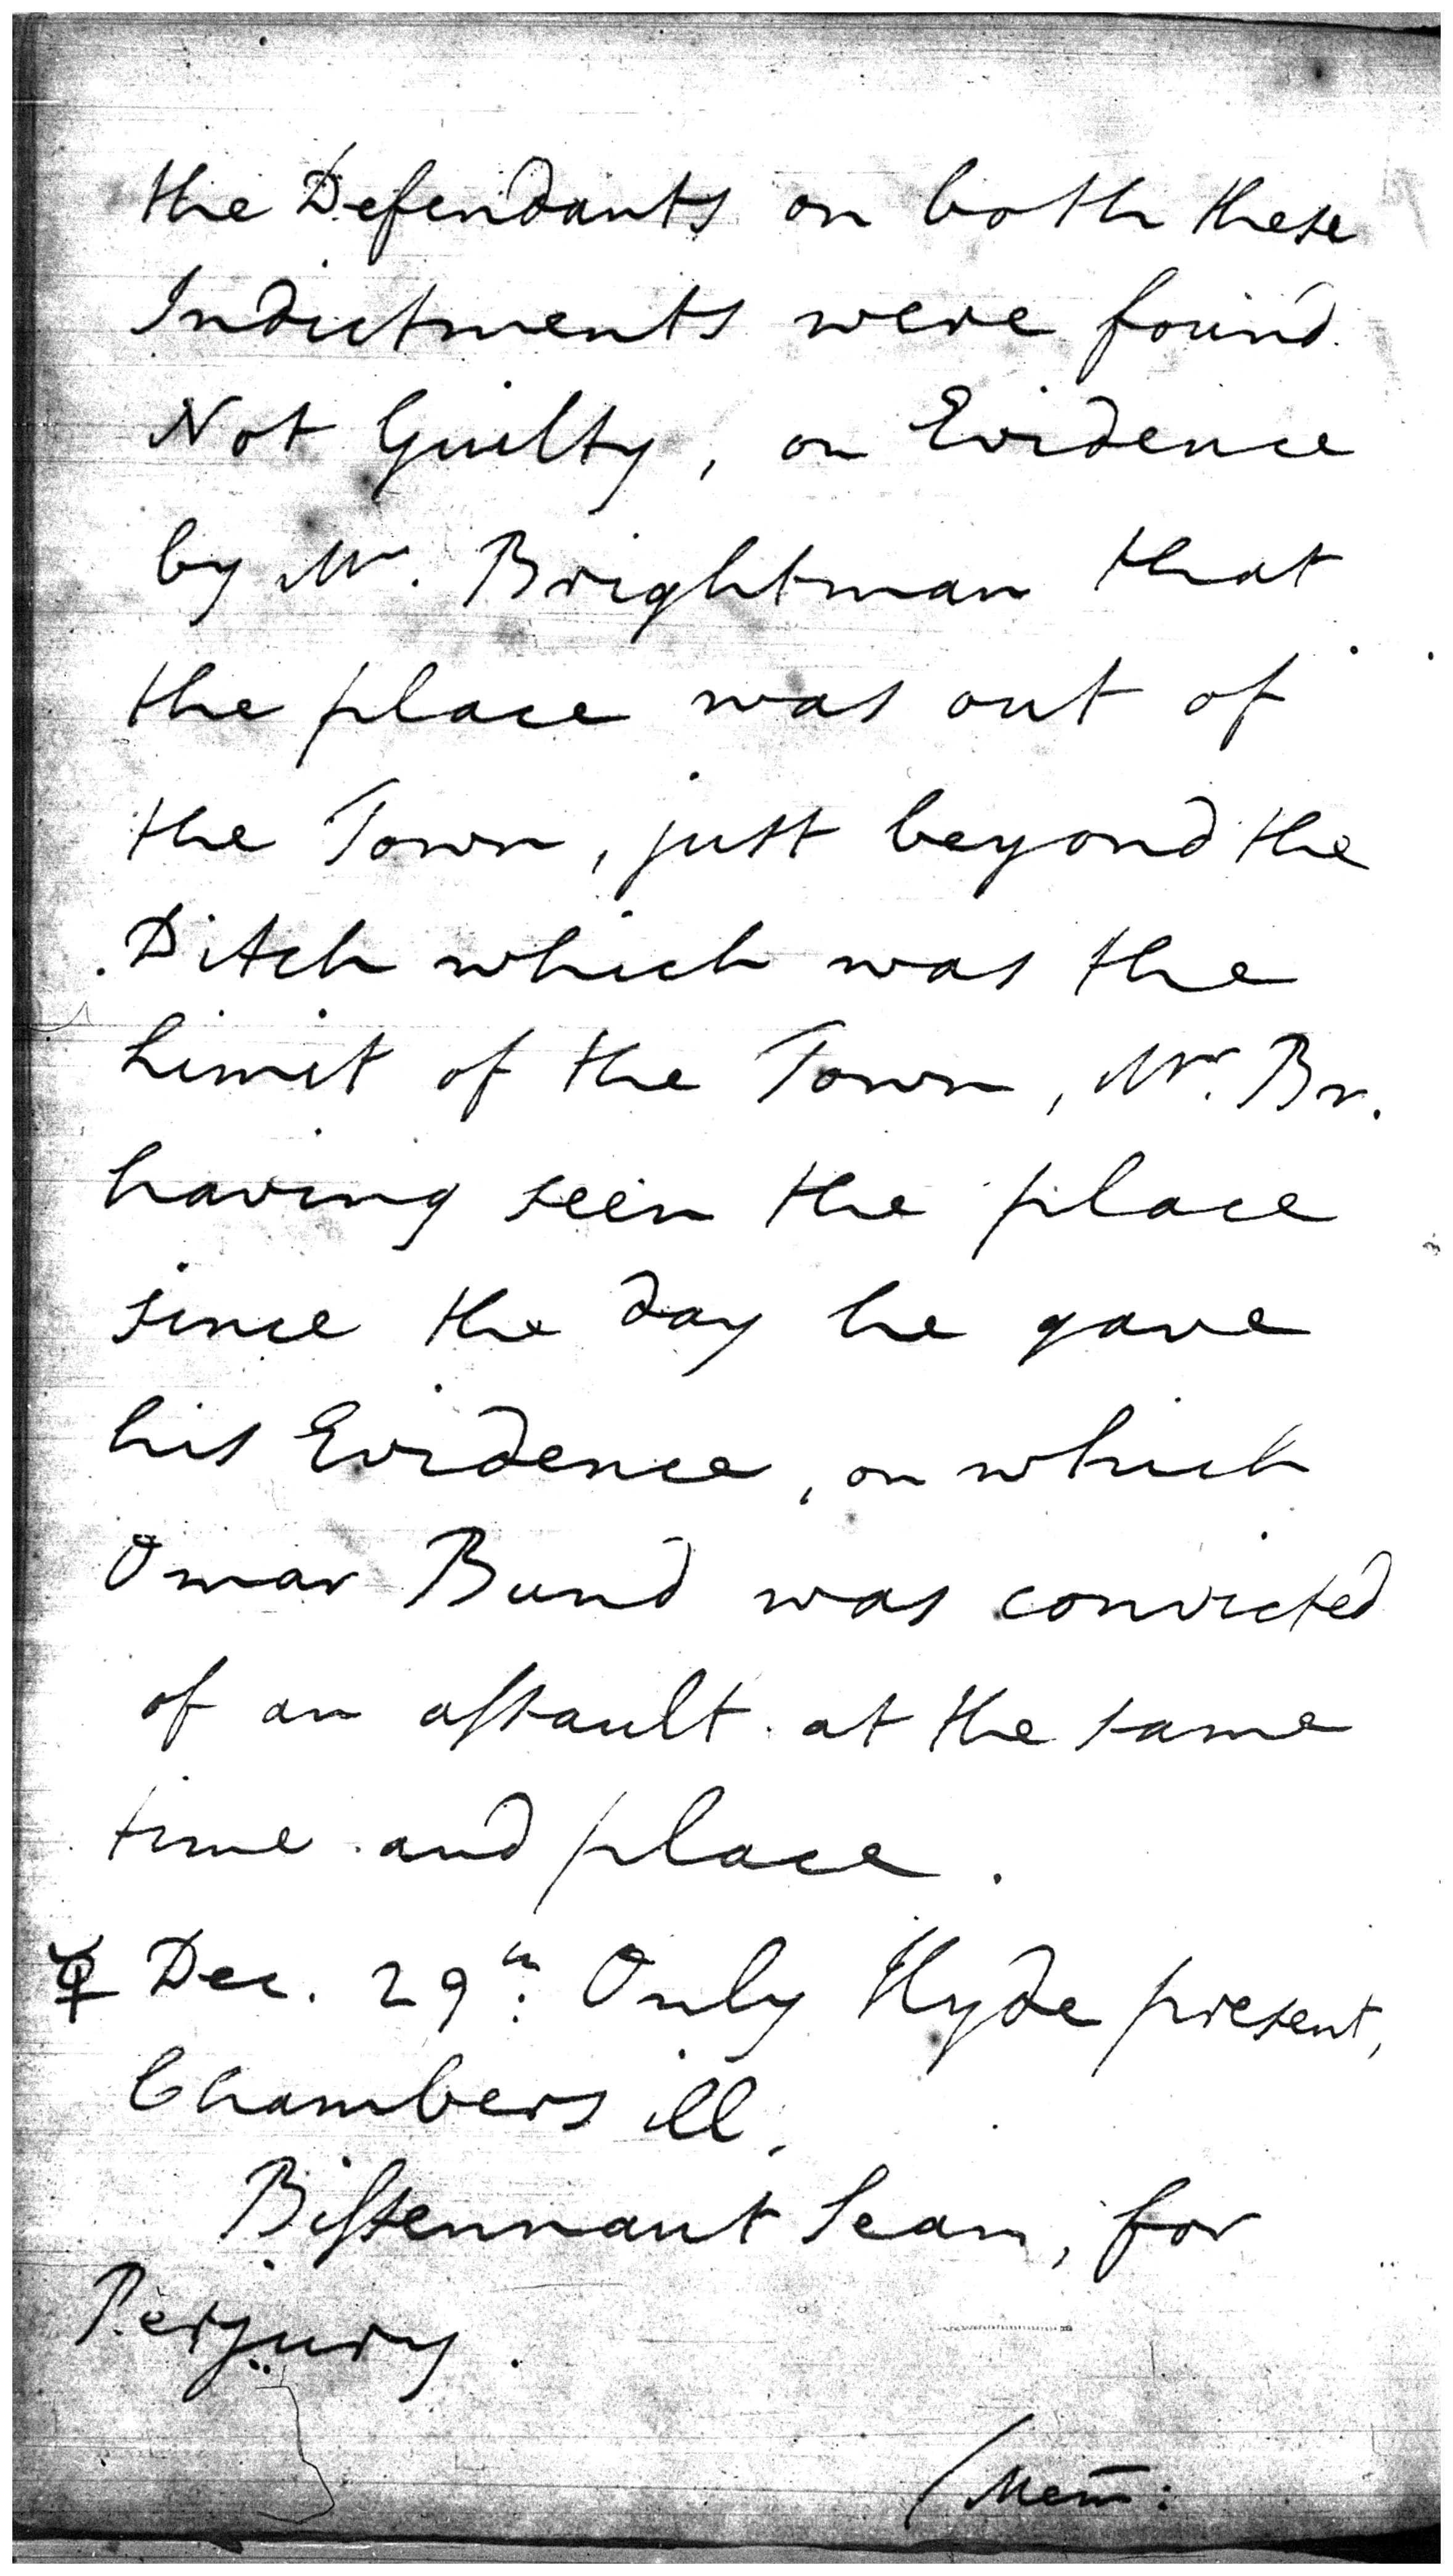 the Defendants on both these
Indictments were found
Not Guilty, on Evidence
by Mr. Brightman that
the place was out of
the Town, just beyond the
Ditch which was the
Limit of the Town, Mr. Br.
having seen the place
since the day he gave
his Evidence, on which
Omar Bund was convicted
of an assault at the same
time and place.
Dec. 29th. Only Hyde present,
Chambers ill.
Bistennaut Sean, for
Perjury.
(Mem̄: